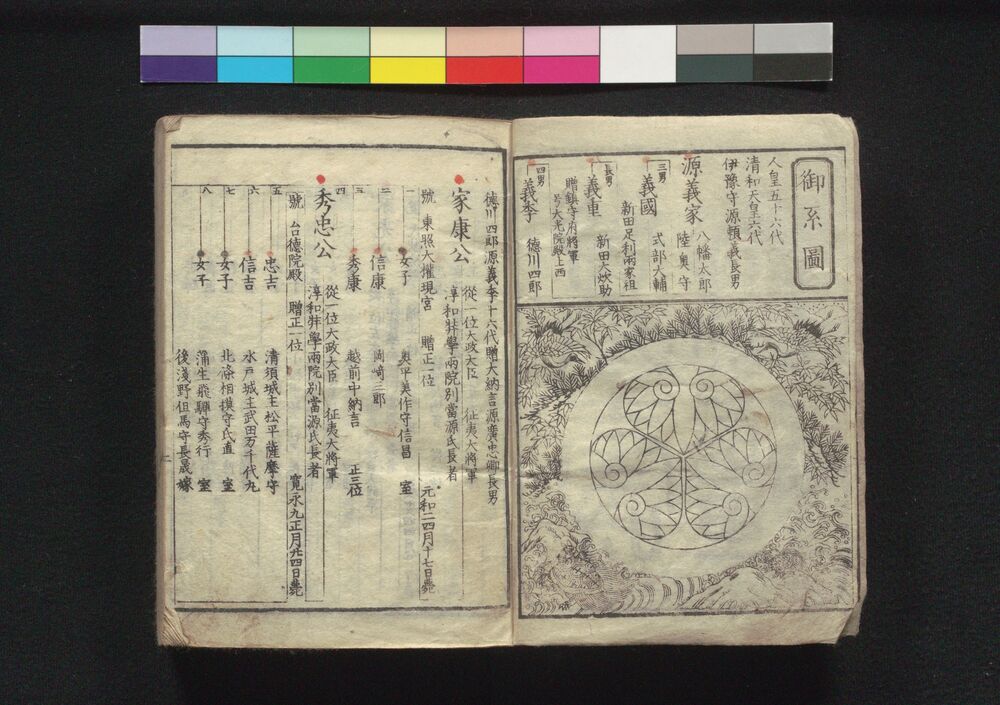 御系圖
人皇五十六代
清和天皇六代
伊豫守源頼義長男
源義家 八幡太郎
陸奥守
三男
義國 式部大輔
新田足利兩家祖
長男
義重 新田大炊助
贈鎮守府将軍
号大光院殿上西
四男
義季 徳川四郎
徳川四郎源義季十六代贈大納言源廣忠卿長男
家康公 從一位大政大臣 征夷大將軍
淳和弉學兩院別當源氏長者
號 東照大權現宮 贈正一位 元和二四月十七日薨
一 女子 奥平美作守信昌 室
二 信康 岡崎三郎
三 秀康 越前中納言 正三位
四
秀忠公 從一位大政大臣 征夷大將軍
淳和弉學兩院別當源氏長者
號 台德院殿 贈正一位 寛永九正月廿四日薨
五 忠吉 清須城主松平薩摩守
六 信吉 水戸城主武田万千代丸
七 女子 北條相摸守氏直 室
八 女子 蒲生飛騨守秀行 室
後淺野但馬守長晟嫁
二